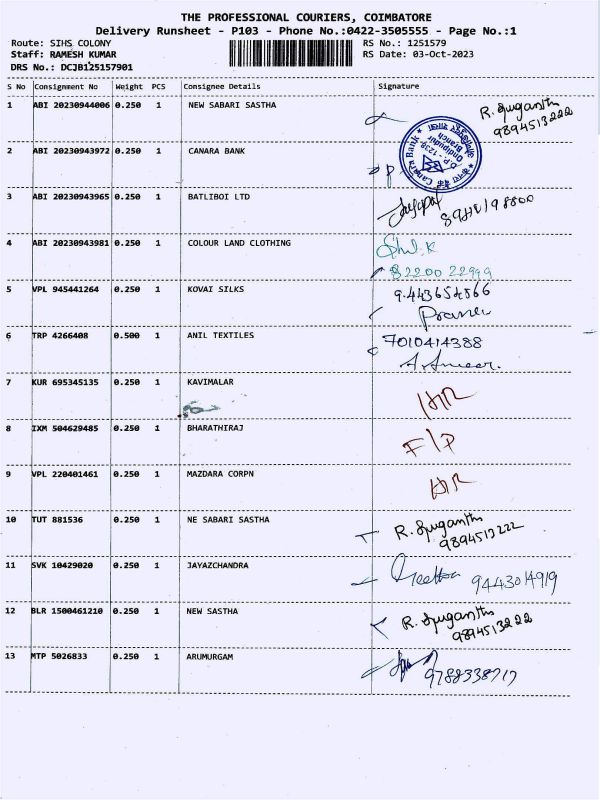 THE PROFESSIONAL COURIERS, COIMBATORE
Delivery Runsheet - P103 - Phone No.:0422-3505555 - Page No.:1
Route: SIHS COLONY RS No.: 1251579
Staff: RAMESH KUMAR RS Date: 03-Oct-2023
DRS No.: DCJB125157901
S No Consignment No Weight PCS Consignee Details Signature
1 ABI 20230944006 0.250 1 NEW SABARI SASTHA R. Suganthi
9894513222
2 ABI 20230943972 0.250 1 CANARA BANK
Canara Bank
D.P. - 1238
Branch
3 ABI 20230943965 0.250 1 BATLIBOI LTD
4 ABI 20230943981 0.250 1 COLOUR LAND CLOTHING
82200 22999
5 VPL 945441264 0.250 1 KOVAI SILKS
6 TRP 4266408 0.500 1 ANIL TEXTILES 7010414388
A. Ameer.
7 KUR 695345135 0.250 1 KAVIMALAR
8 IXM 504629485 0.250 1 BHARATHIRAJ F/P
9 VPL 220401461 0.250 1 MAZDARA CORPN
10 TUT 881536 0.250 1 NE SABARI SASTHA R. Suganthi
9894513222
11 SVK 10429020 0.250 1 JAYAZCHANDRA 9443014919
12 BLR 1500461210 0.250 1 NEW SASTHA R. Suganthi
9894513222
13 MTP 5026833 0.250 1 ARUMURGAM
9788338717